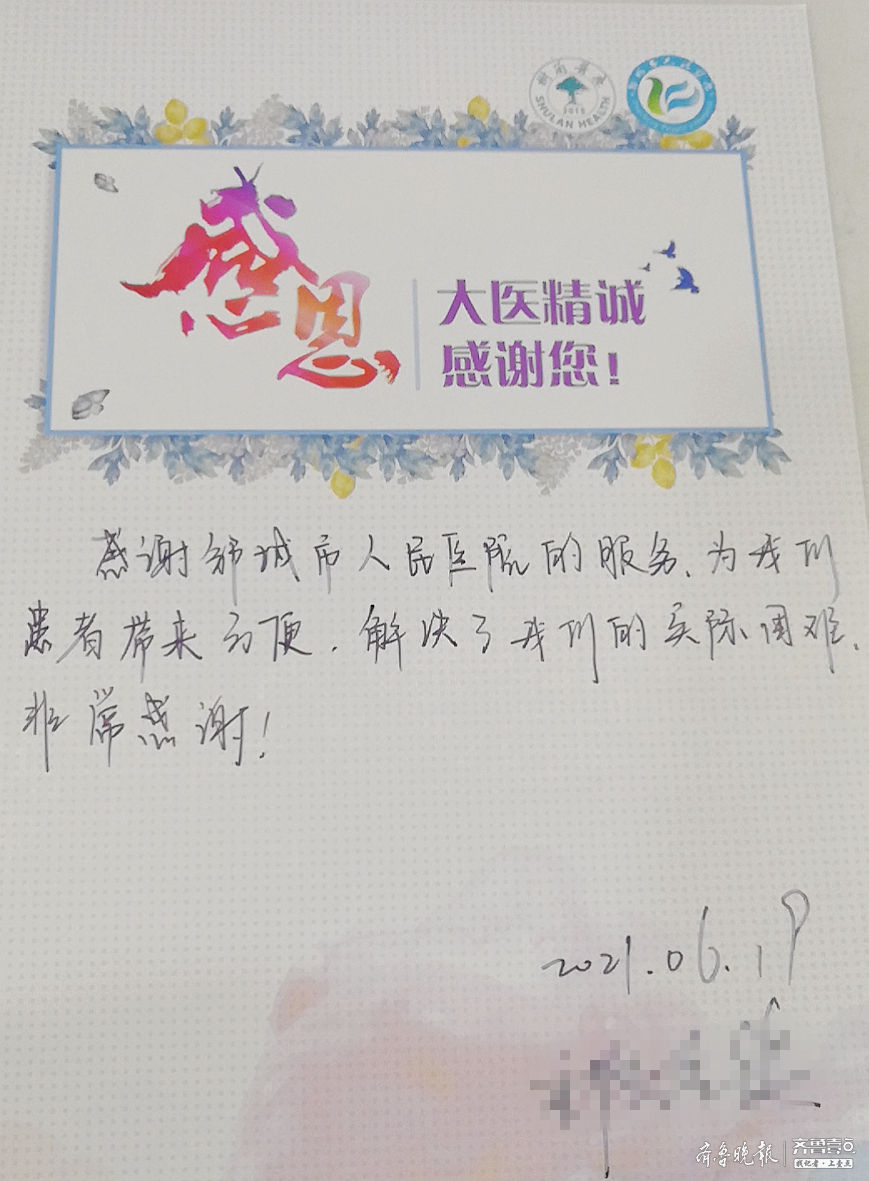 树兰医疗
SHULAN HEALTH
2015
感恩
大医精诚
感谢您!
感谢邹城市人民医院的服务、为我们
患者带来方便,解决了我们的实际困难、
非常感谢!
2021.06.19
齐鲁晚报
齐鲁壹点
我记者·上壹点